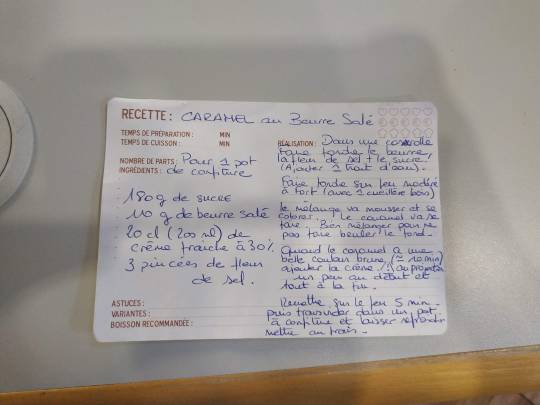 RECETTE: CARAMEL au Beurre Salé
TEMPS DE PRÉPARATION : MIN
TEMPS DE CUISSON : MIN
NOMBRE DE PARTS : Pour 1 pot
de confiture
INGRÉDIENTS :
180 g de sucre
110 g de beurre salé
20 cl (200 ml) de
crème fraiche à 30%
3 pincées de fleur
de sel.
ASTUCES :
VARIANTES :
BOISSON RECOMMANDÉE :
RÉALISATION : Dans une casserolle
faire fondre le beurre
la fleur de sel + le sucre!
(Ajouter 1 trait d'eau).
Faire fondre sur feu modéré
à fort (avec 1 cuillère bois)
le mélange va mousser et se
colorer. Le caramel va se
faire. Bien mélanger pour ne
pas faire bruler le fond.
Quand le caramel a une
belle couleur brune, (≈ 10 min)
ajouter la crème! (
un peu au début et
tout à la fin.
Remettre sur le feu 5 min
puis transvider dans un pot
à confiture et laisser refroidir
mettre au frais.